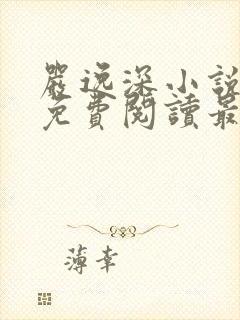 嚴逸深小說
免費閱讀最
薄幸